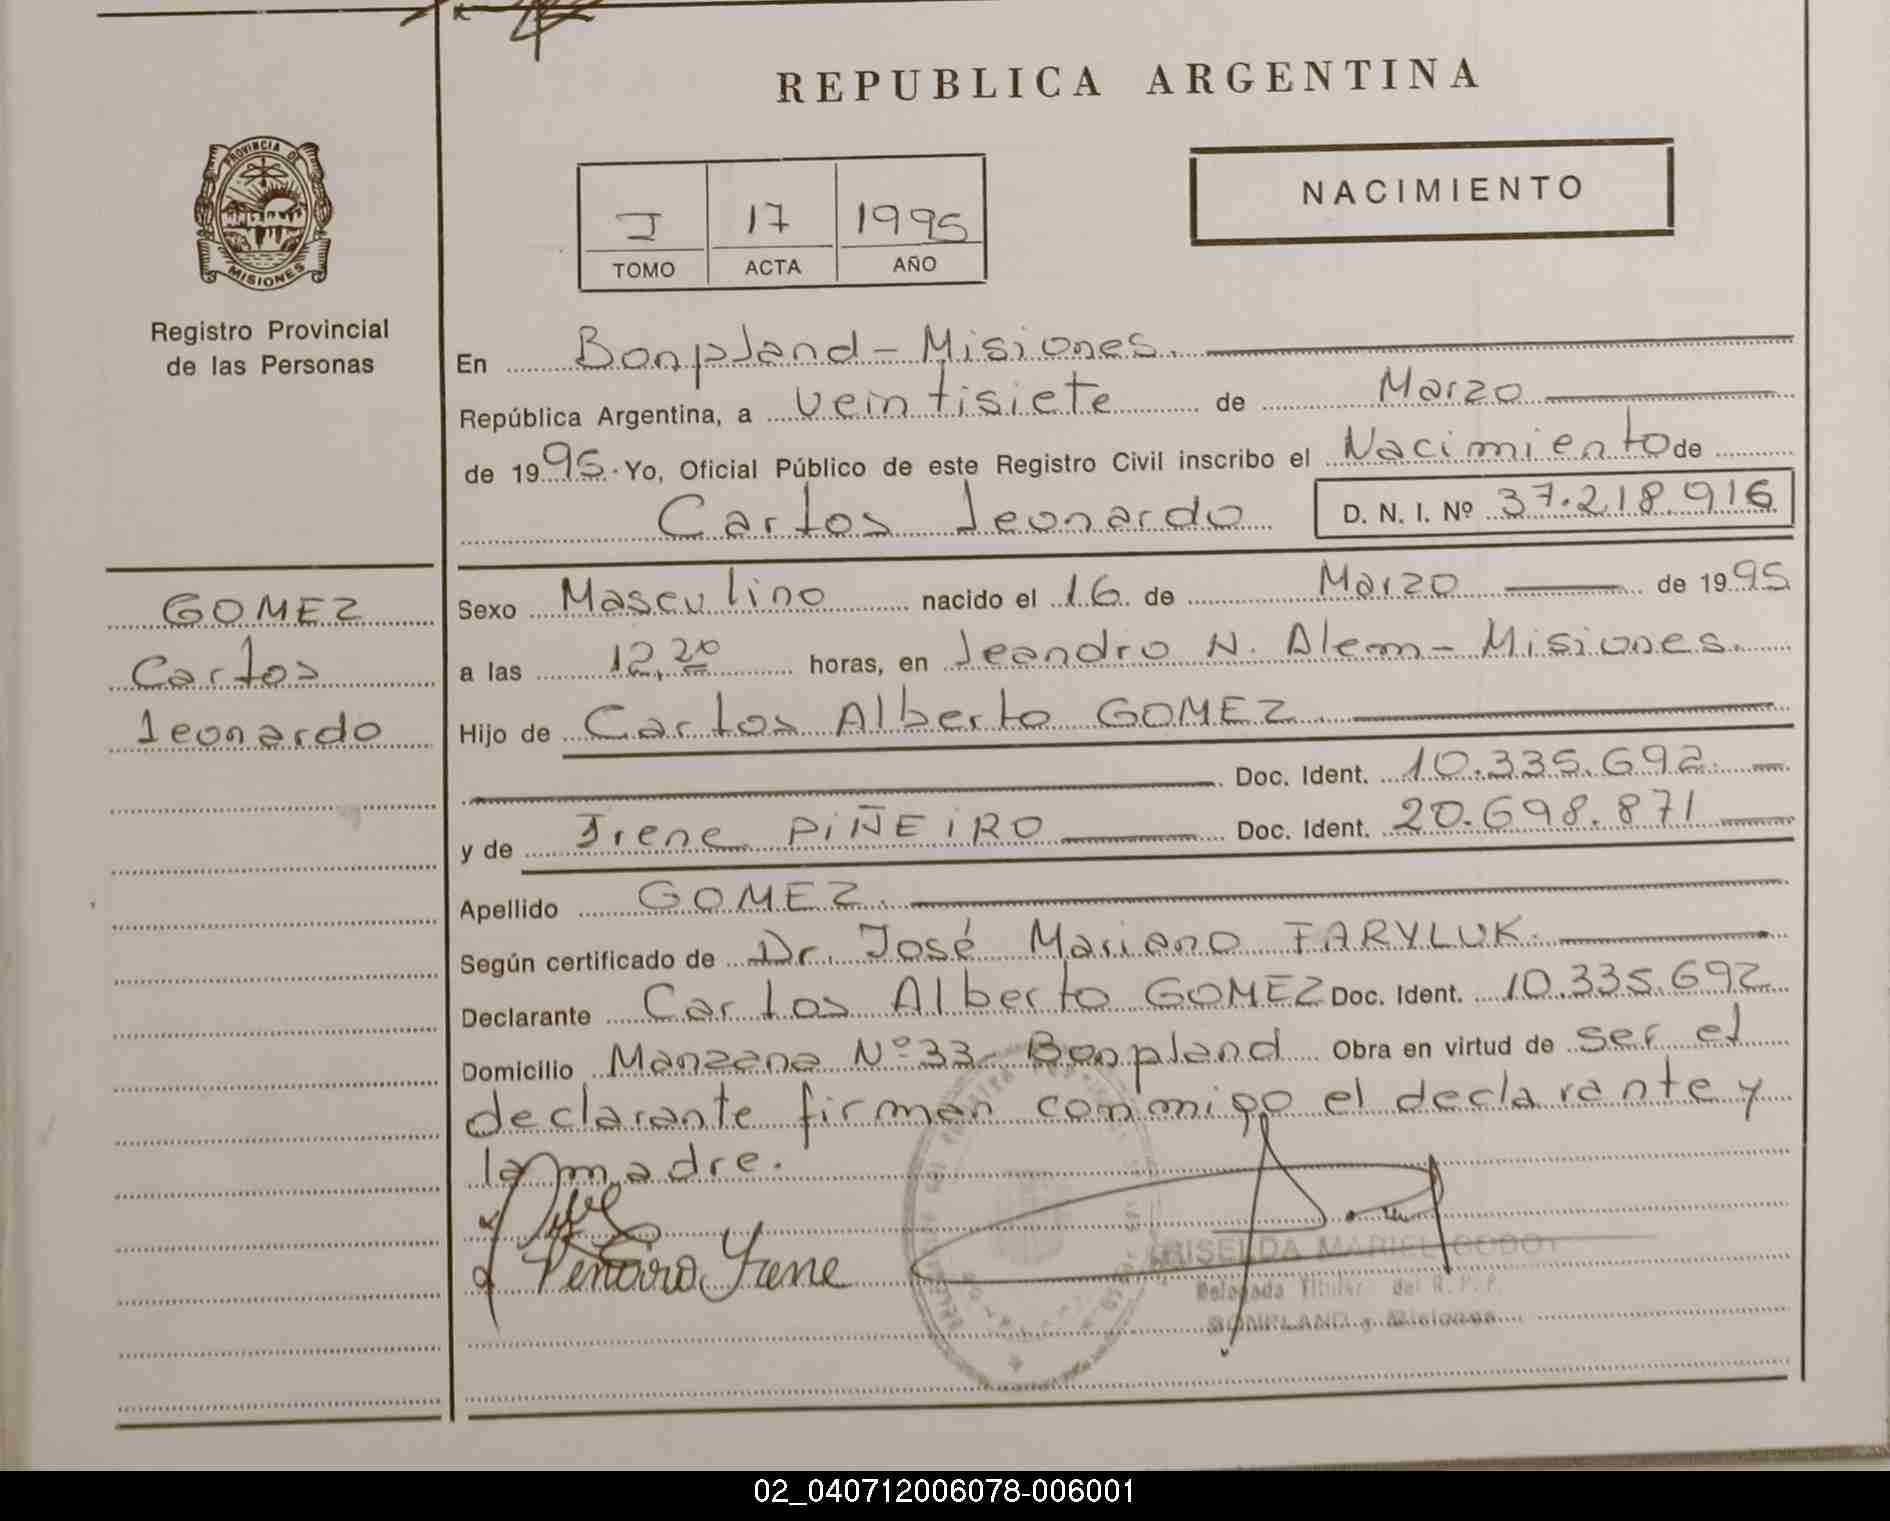 REPUBLICA ARGENTINA
PROVINCIA DE
MISIONES
NACIMIENTO
I 17 1995
TOMO ACTA AÑO
Registro Provincial
de las Personas
En Bonpland - Misiones.
República Argentina, a veintisiete de Marzo
de 1995. Yo, Oficial Público de este Registro Civil inscribo el Nacimiento de
Carlos Leonardo D. N. I. Nº 37.218.916
GOMEZ
Carlos
Leonardo
Sexo Masculino nacido el 16 de Marzo de 1995
a las 12,20 horas, en Leandro N. Alem - Misiones.
Hijo de Carlos Alberto GOMEZ
Doc. Ident. 10.335.692.
y de Irene PIÑEIRO Doc. Ident. 20.698.871
Apellido GOMEZ.
Según certificado de Dr. José Mariano FARYLUK.
Declarante Carlos Alberto GOMEZ Doc. Ident. 10.335.692
Domicilio Manzana Nº 33 - Bonpland Obra en virtud de ser el
declarante firman conmigo el declarante y
la madre.
Irene
GRISELDA MARIEL GODOY
Delegada Titular del R. P. P.
BONPLAND - Misiones
02_040712006078-006001